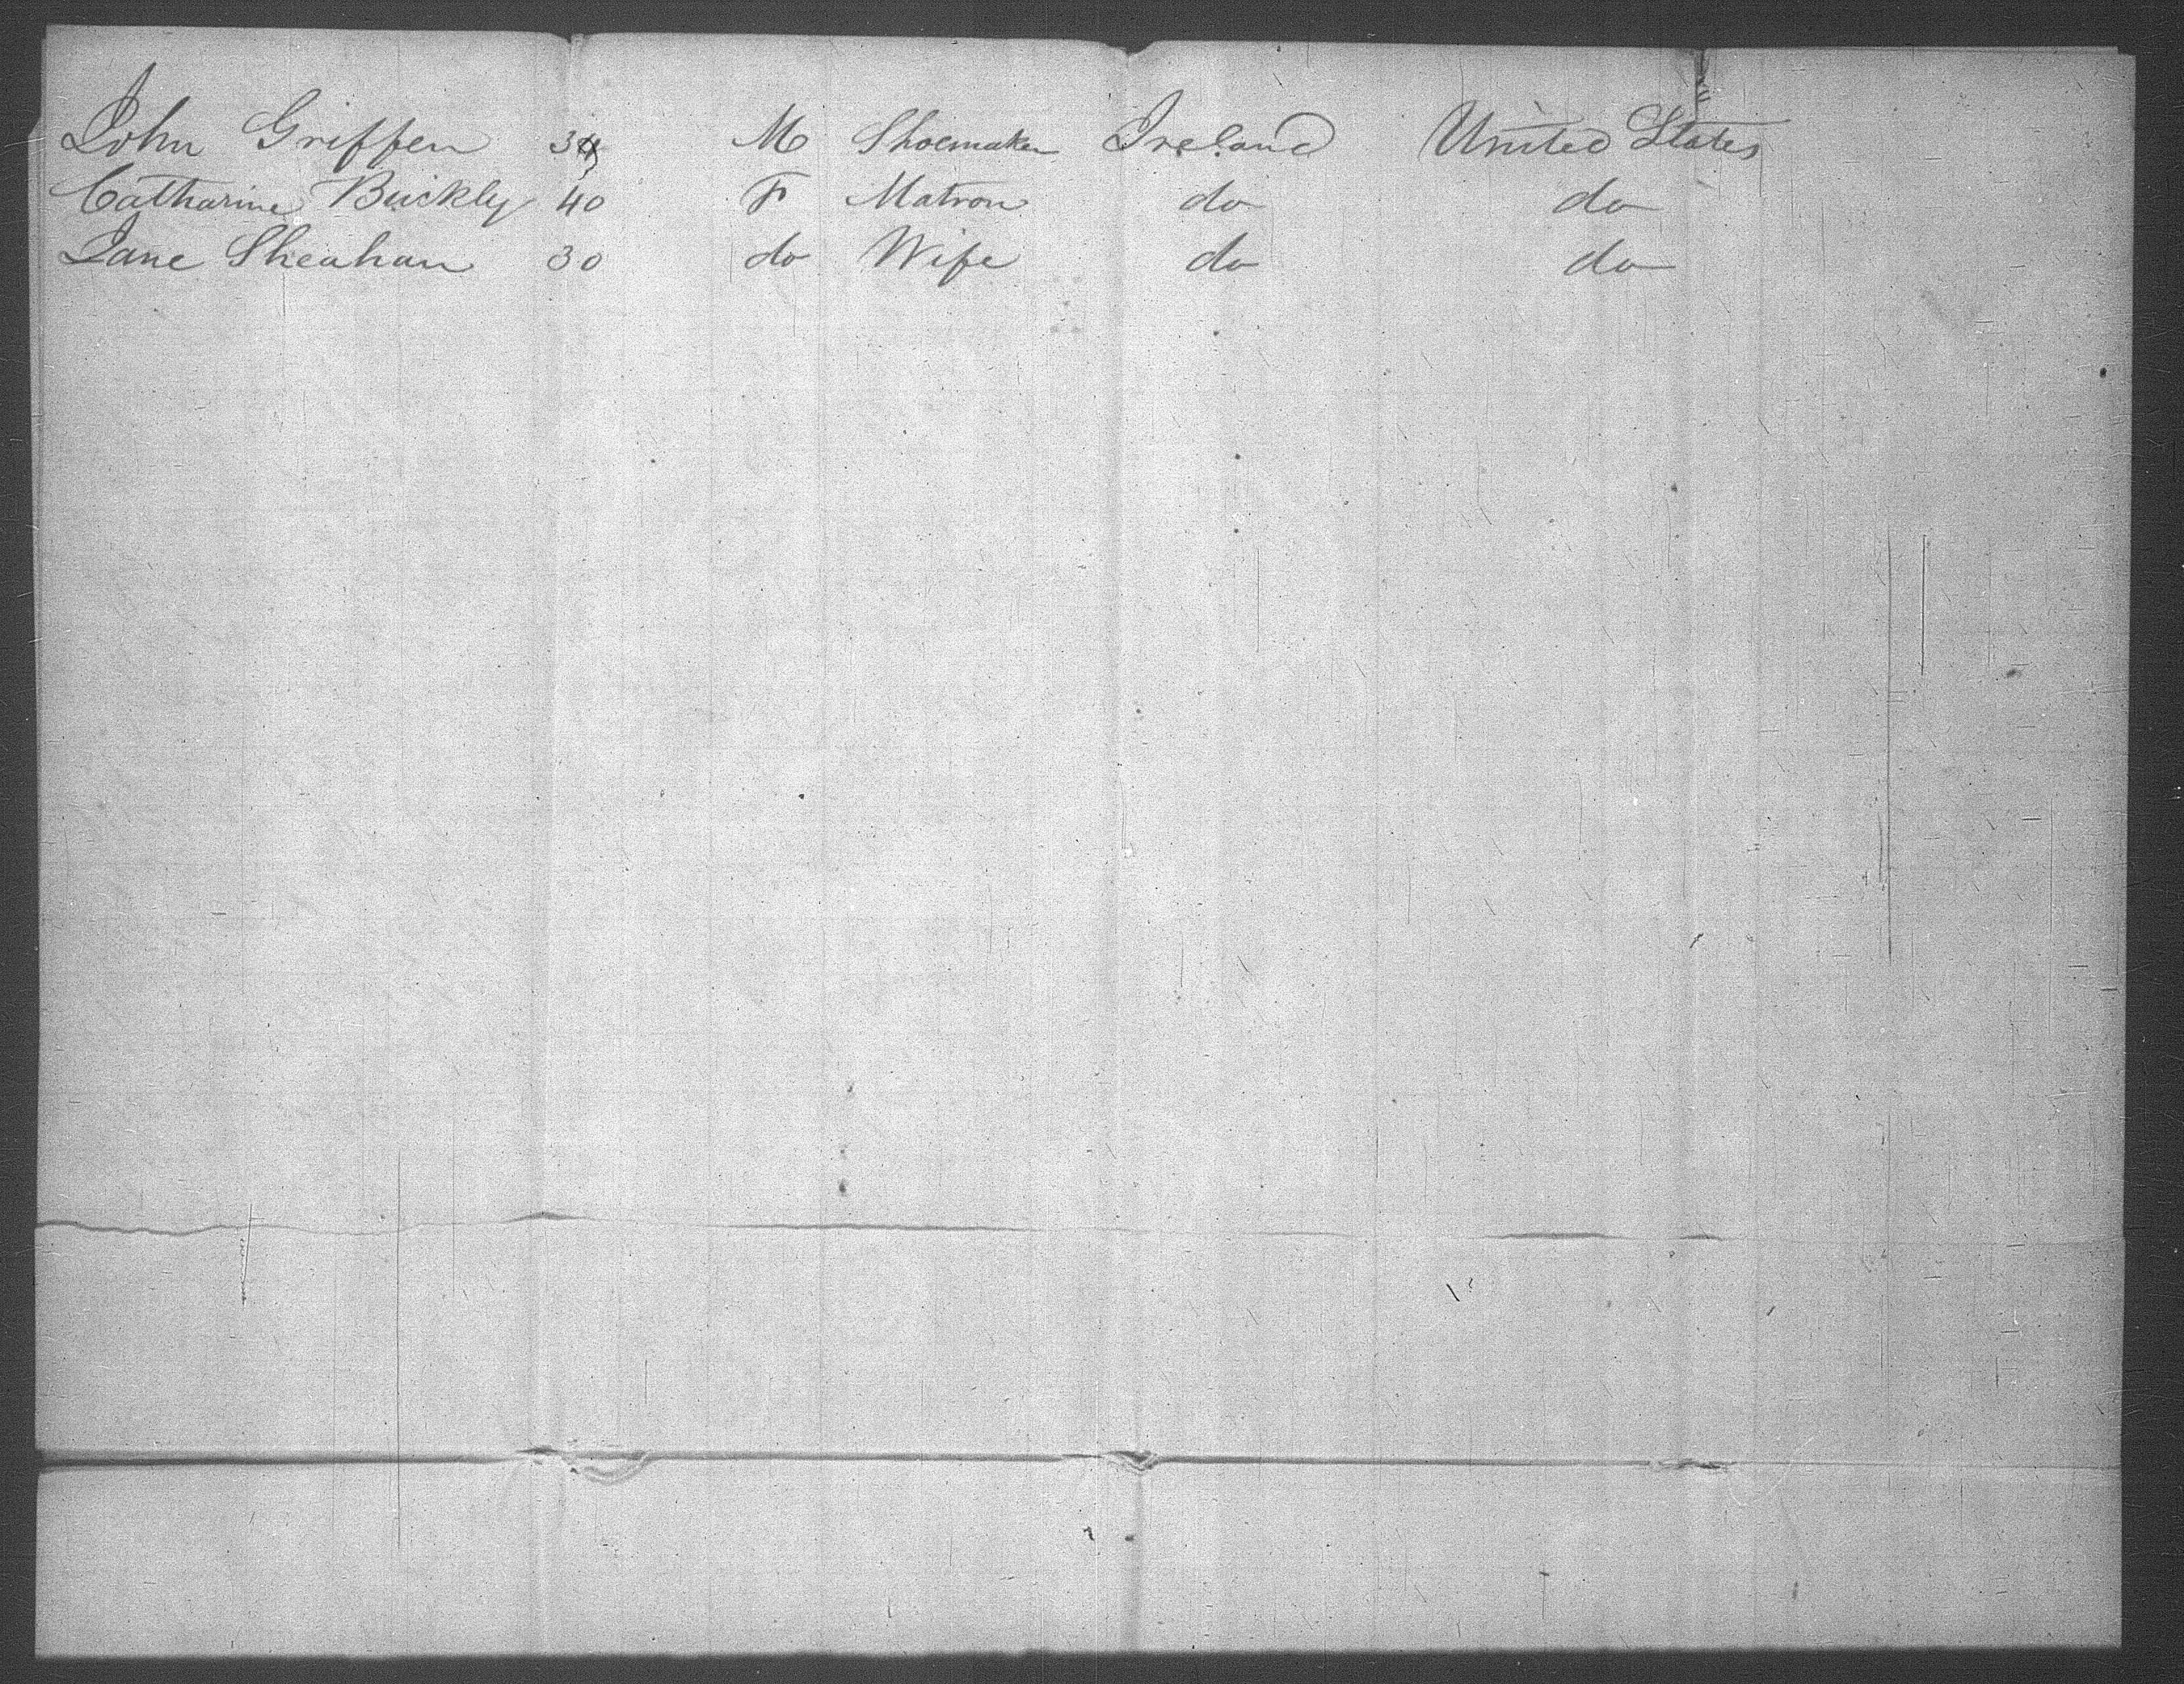 John Griffen M Shoemaker Ireland United States
Catharine Buckly 40 F Matron do do
Jane Sheahan 30 do Wife do do